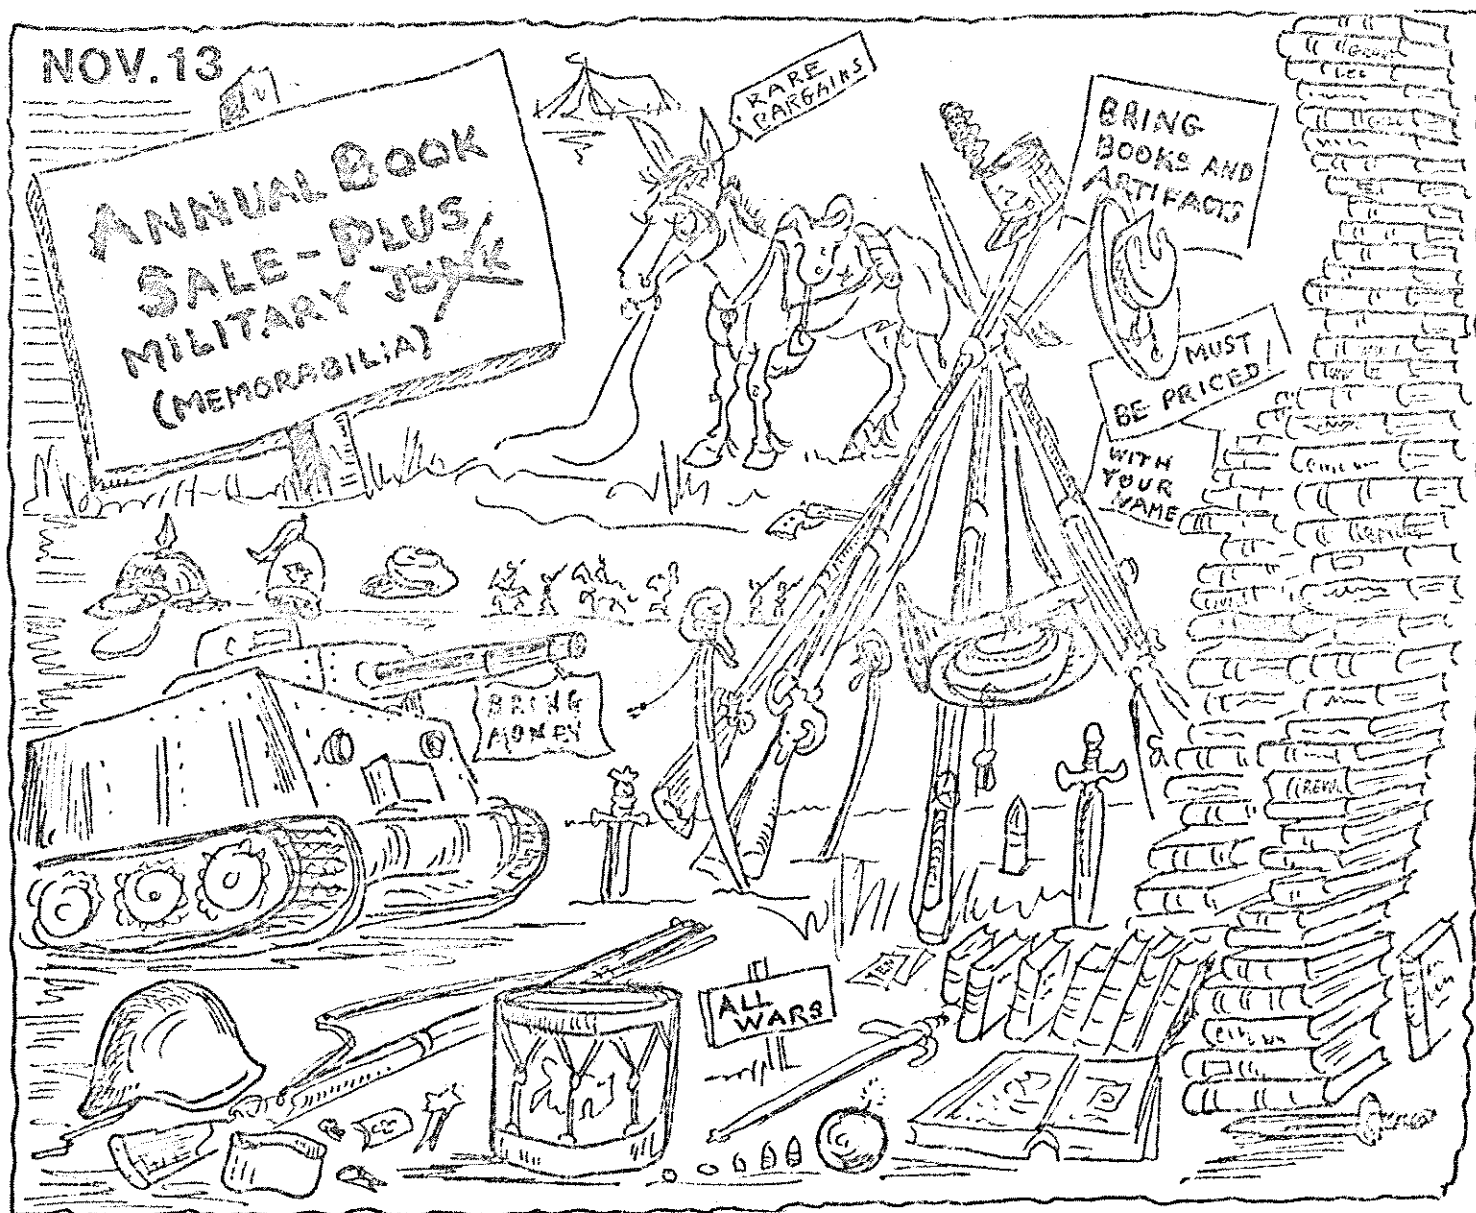 NOV. 13
ANNUAL BOOK
SALE - PLUS
MILITARY JUNK
(MEMORABILIA)
RARE
BARGAINS
BRING
BOOKS AND
ARTIFACTS
MUST
BE PRICED!
WITH
YOUR
NAME
BRING
MONEY
ALL
WARS
LEE